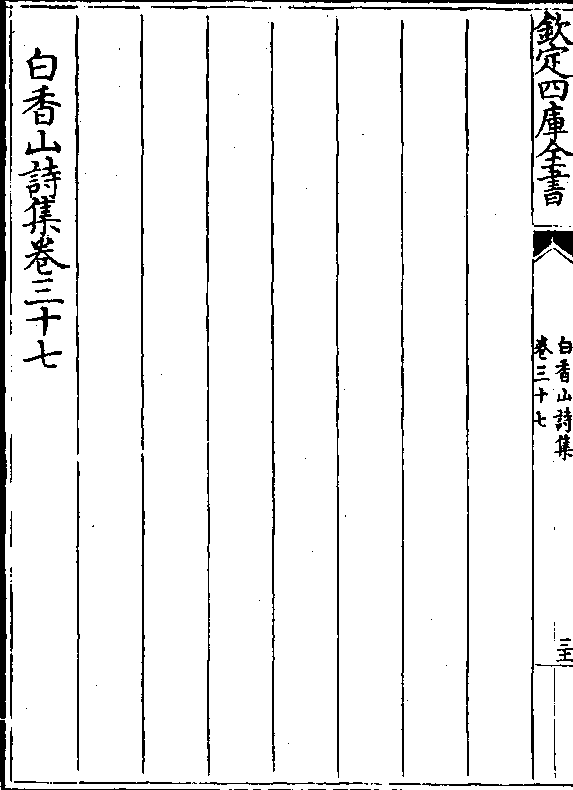 欽定四庫全書
白香山詩集
卷三十七
白香山詩集卷三十七